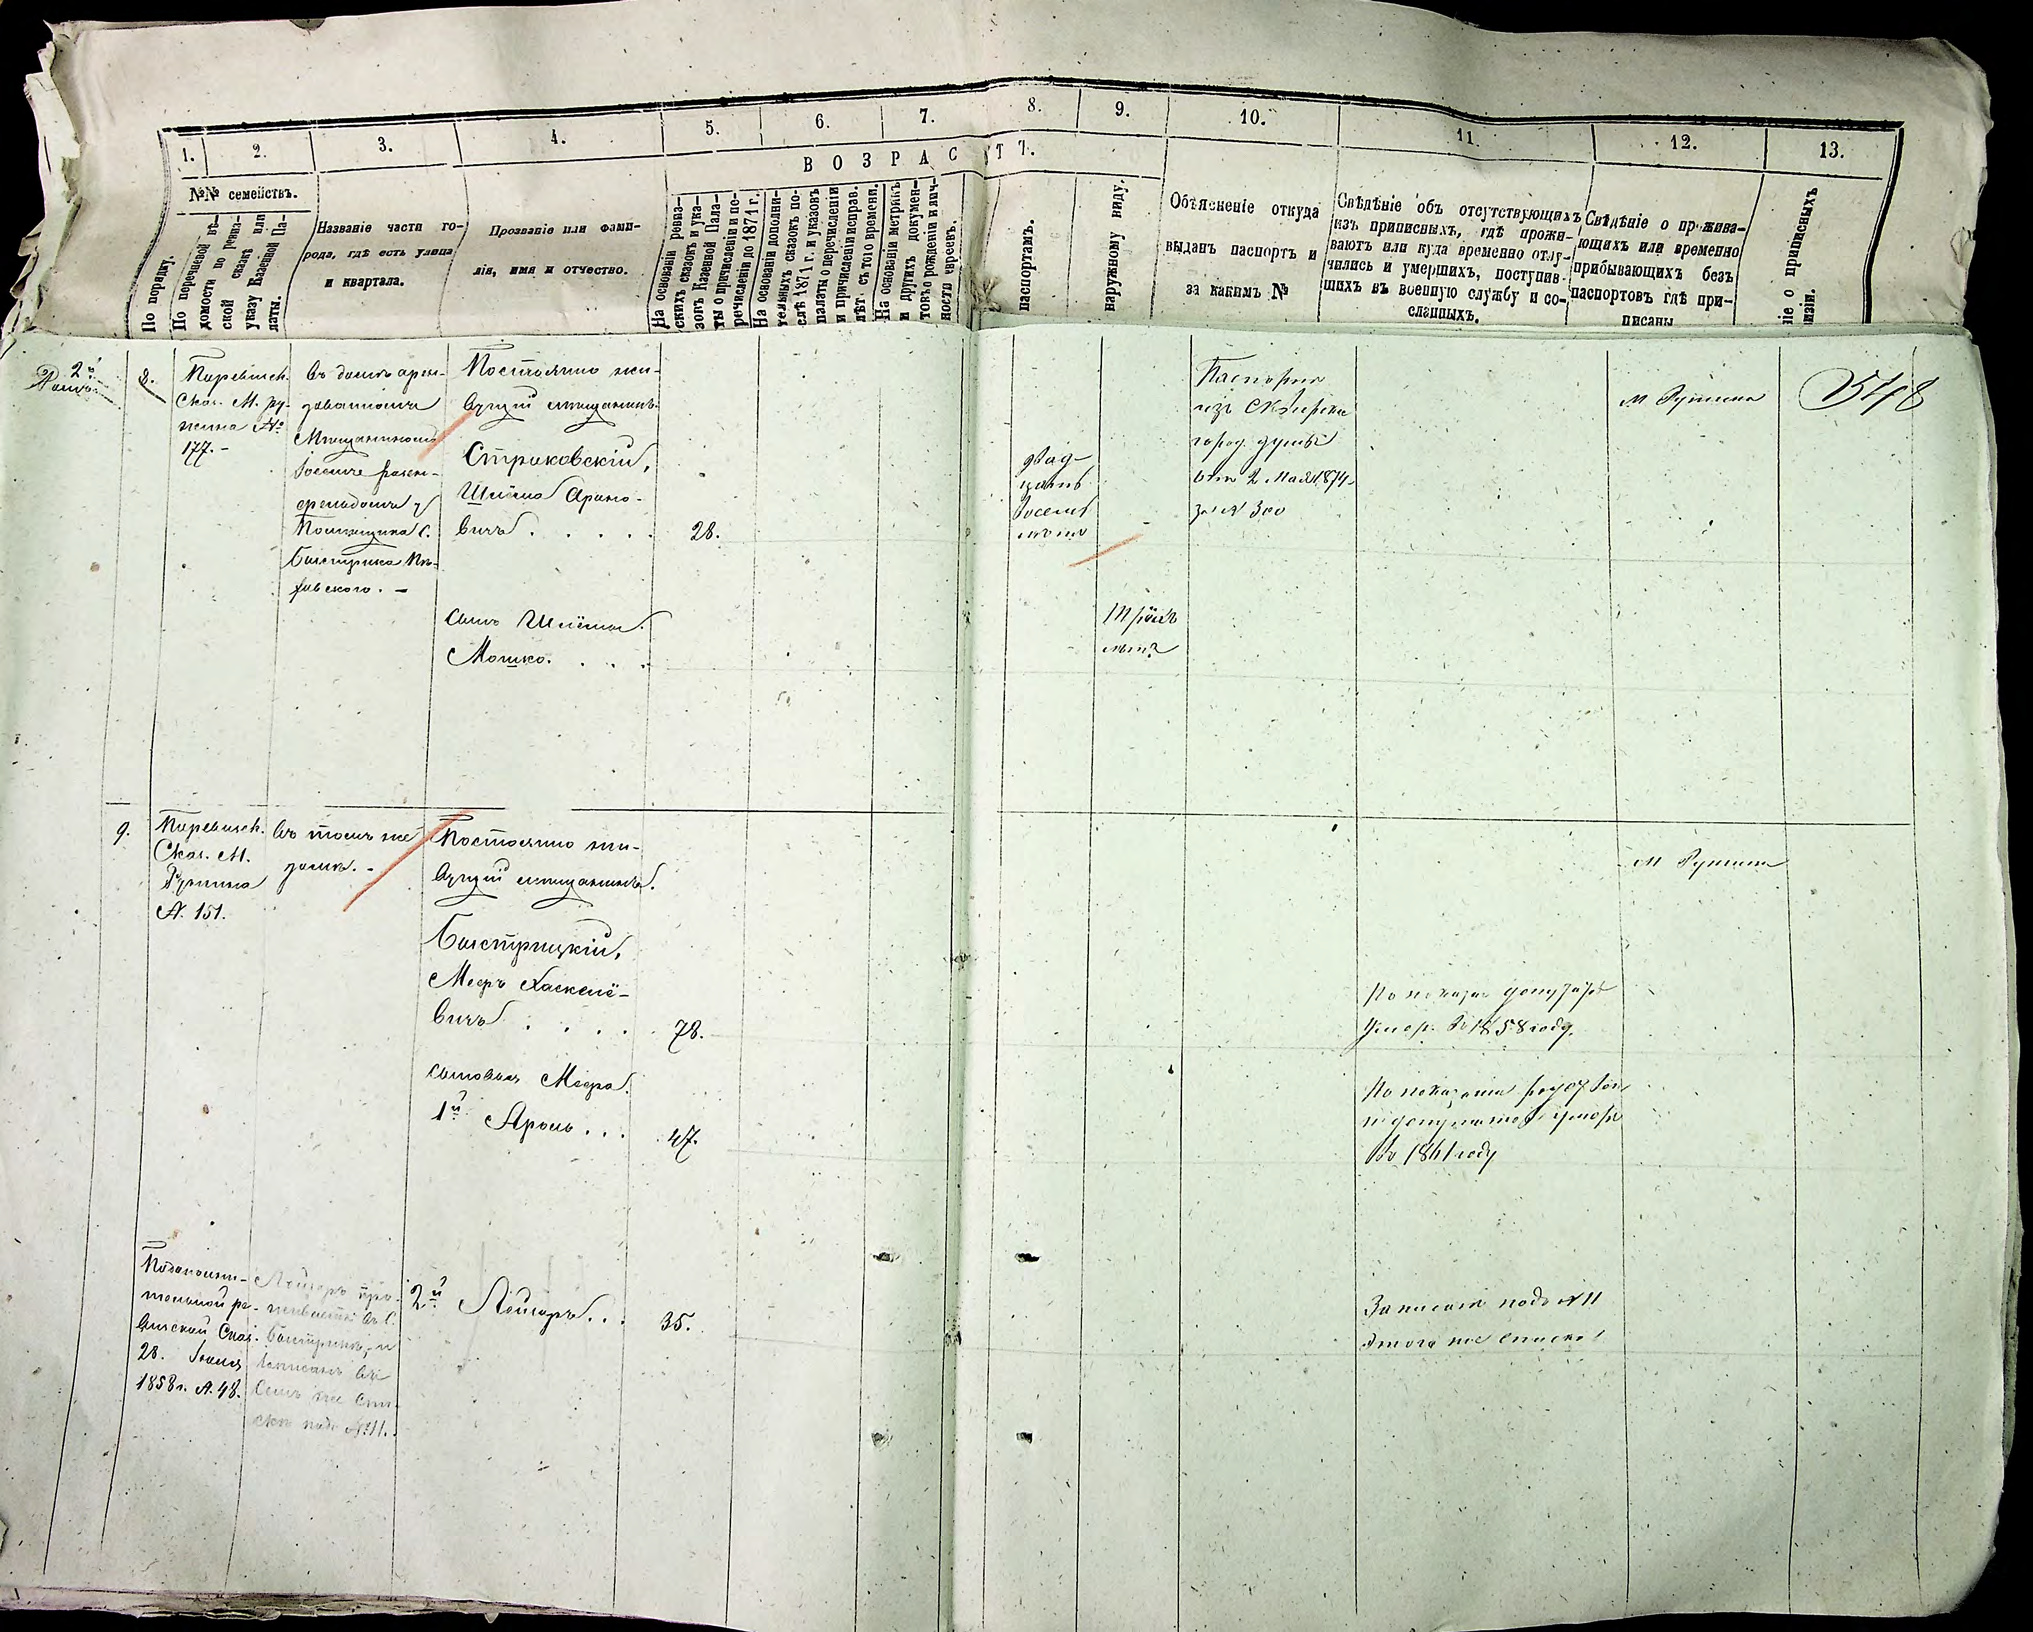 1. 2. 3. 4. 5. 6. 7. 8. 9. 10. 11. 12. 13.
ВОЗРАСТЪ.
№№ семействъ.
По порядку.
По перечневой вѣ-
домости по ревиз-
ской сказкѣ или
указу Казенной Па-
латы.
Названіе части го-
рода, гдѣ есть улица
и квартала.
Прозваніе или фами-
лія, имя и отчество.
На основаніи ревиз-
скихъ сказокъ и ука-
зовъ Казенной Пала-
ты о причисленіи и пе-
речисленіи до 1871 г.
На основаніи дополни-
тельныхъ сказокъ по-
слѣ 1871 г. и указовъ
палаты о перечисленіи
и причисленіи исправ.
лѣт. съ того времени.
На основаніи метрикъ
и другихъ докумен-
товъ о рожденіи и лич-
ности евреевъ.
паспортамъ.
наружному виду.
Объясненіе откуда
выданъ паспортъ и
за какимъ №
Свѣдѣніе объ отсутствующихъ
изъ приписныхъ, гдѣ прожи-
ваютъ или куда временно отлу-
чились и умершихъ, поступив-
шихъ въ военную службу и со-
сланныхъ.
Свѣдѣніе о прожива-
ющихъ или временно
прибывающихъ безъ
паспортовъ гдѣ при-
писаны
ніе о приписныхъ
визіи.
2й
8.
Поревизск.
Сказ. М. Ру-
жина №
177. -
въ домѣ арен-
дованномъ
Мѣщаниномъ
Помѣщика С.
Быстрика
Постоянно жи-
вущій мѣщанинъ.
Стриковскій,
Шлёма Ароно-
вичъ . . . . . 28.
двад-
цать
восемь
лѣтъ
Паспортъ
изъ Сквирской
город. думы
отъ 2 Мая 1874
за № 300
М Ружина
548
Сынъ Шлёмы.
Мошко. . . .
Трёхъ
лѣтъ
9.
Поревизск.
Сказ. М.
Ружина
№. 151.
въ томъ же
домѣ. -
Постоянно жи-
вущій мѣщанинъ.
Быстрицкій,
Мееръ Хаскелё-
вичъ . . . . 78.
По показан депутат
умер. въ 1858 году.
М Ружина
сыновья Меера.
1й Аронъ . . . 47.
По показанію
и депутатовъ умеръ
Во 1861 году
Подополни-
тельной ре-
визской Сказ.
28. Іюня
1858 г. №. 48.
Лейзоръ про-
живаетъ въ С.
Быстрикѣ, и
записанъ въ
семъ же спи-
скѣ подъ №11.
2й Лейзоръ . . . 35.
Записанъ подъ №11
этого же списка